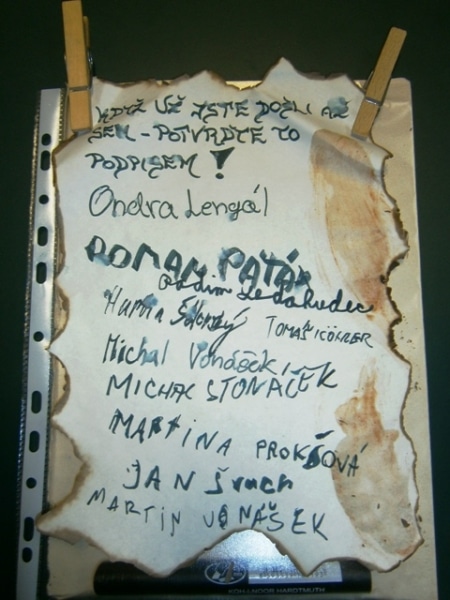 KDYŽ UŽ JSTE DOŠLI AŽ
SEM - POTVRĎTE TO
PODPISEM!
Ondra Lengál
ROMAN PATÁK
Hanna
TOMÁŠ KÖHLER
Michal Voháček
MICHAL STONAČEK
MARTINA PROKŠOVÁ
JAN Švach
MARTIN VONÁŠEK
KOH-I-NOOR HARDTMUTH